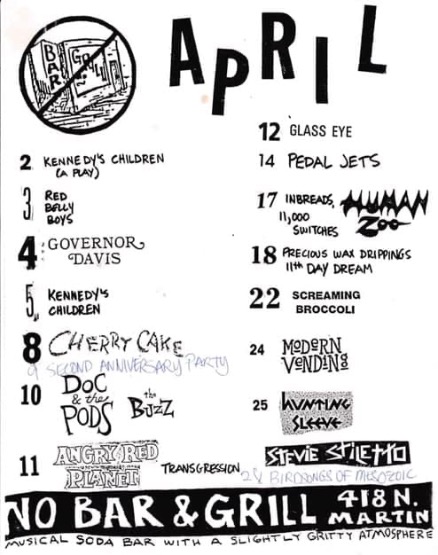 BAR
GRILL
APRIL
2 KENNEDY'S CHILDREN
(A PLAY)
3 RED
BELLY
BOYS
4 GOVERNOR
DAVIS
5 KENNEDY'S
CHILDREN
8 CHERRY CAKE
9 SECOND ANNIVERSARY PARTY
10 DOC
& the
PODS
the
BUZZ
11 ANGRY RED
PLANET
TRANSGRESSION
12 GLASS EYE
14 PEDAL JETS
17 INBREADS,
11,000
SWITCHES
HUMAN
ZOO
18 PRECIOUS WAX DRIPPINGS
11th DAY DREAM
22 SCREAMING
BROCCOLI
24 MODERN
VENDING
25 HUNTING
SLEEVE
STEVIE STILETTO
28 BIRDSONGS OF MESOZOIC
NO BAR & GRILL 418 N.
MARTIN
MUSICAL SODA BAR WITH A SLIGHTLY GRITTY ATMOSPHERE